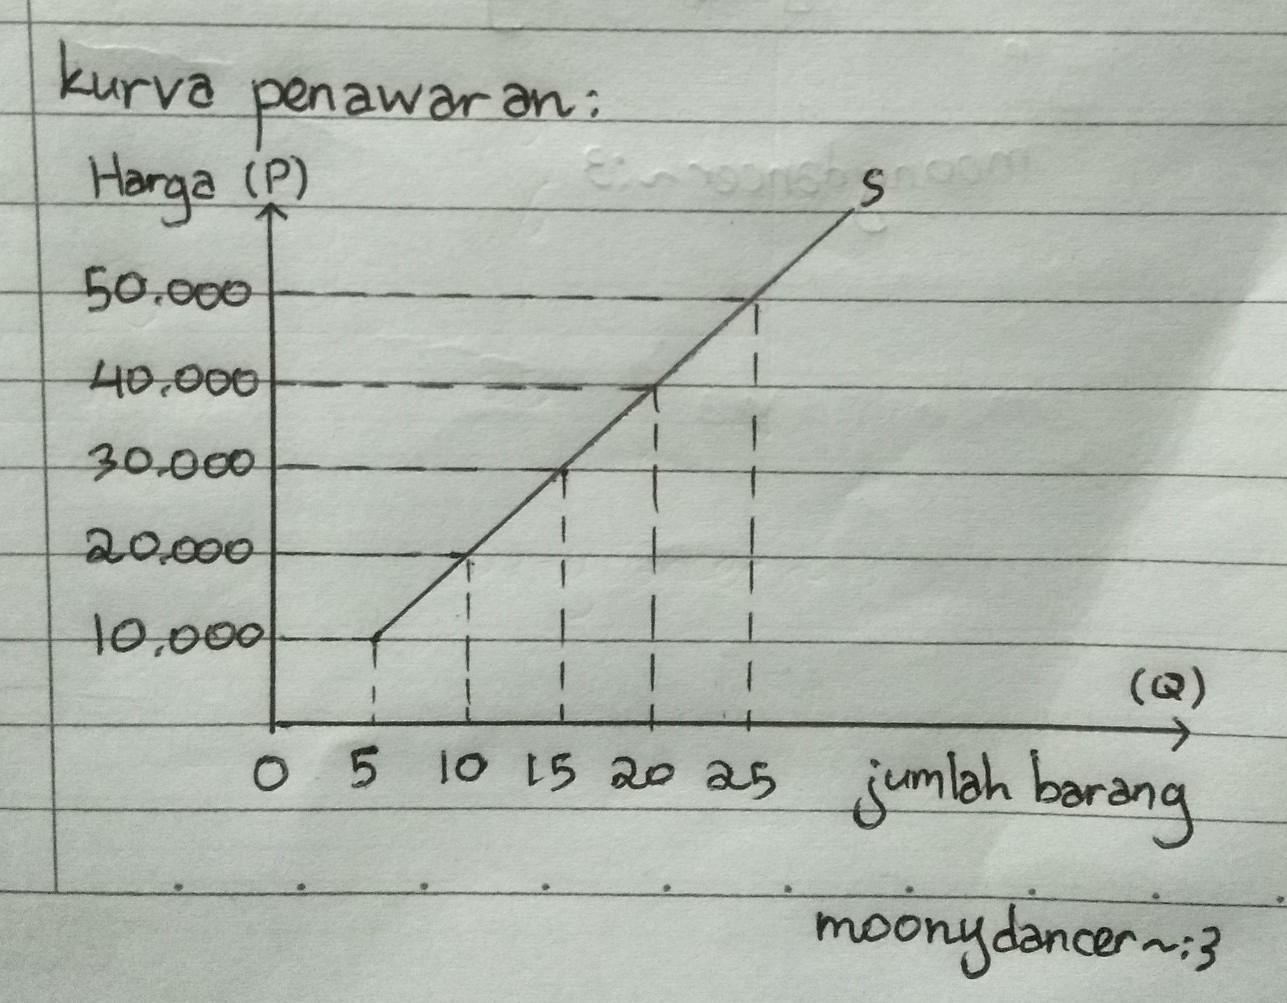 kurva penawaran:
Harga (P)
S
50.000
40.000
30.000
20.000
10.000
(Q)
0 5 10 15 20 25 jumlah barang
moonydancer~:3